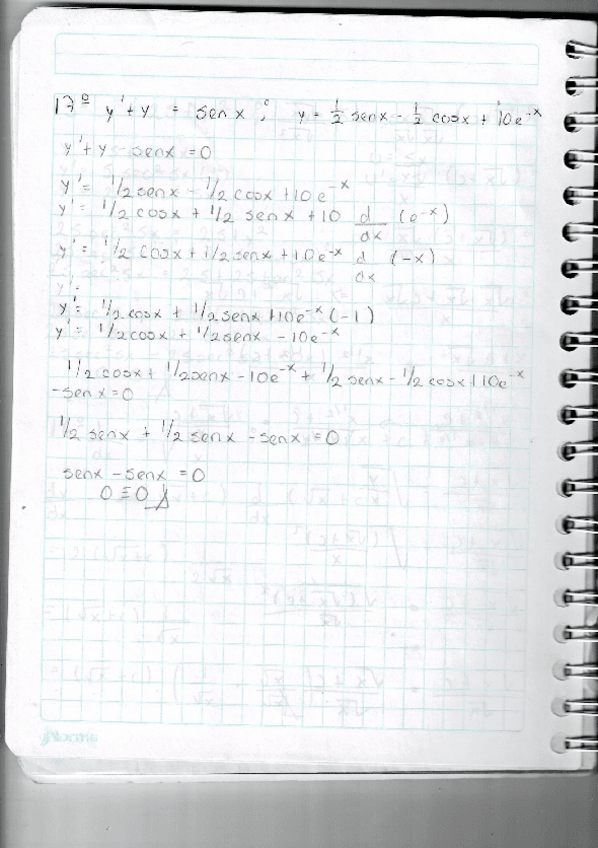 17º y' + y = senx ; y = 1/2 senx - 1/2 cosx + 10e^-x
y' + y - senx = 0
y' = 1/2 senx - 1/2 cosx + 10e^-x
y' = 1/2 cosx + 1/2 senx + 10 d/dx (e^-x)
y' = 1/2 cosx + 1/2 senx + 10e^-x d/dx (-x)
y' =
y' = 1/2 cosx + 1/2 senx + 10e^-x (-1)
y' = 1/2 cosx + 1/2 senx - 10e^-x
1/2 cosx + 1/2 senx - 10e^-x + 1/2 senx - 1/2 cosx + 10e^-x
- senx = 0
1/2 senx + 1/2 senx - senx = 0
senx - senx = 0
0 ≡ 0
Norma